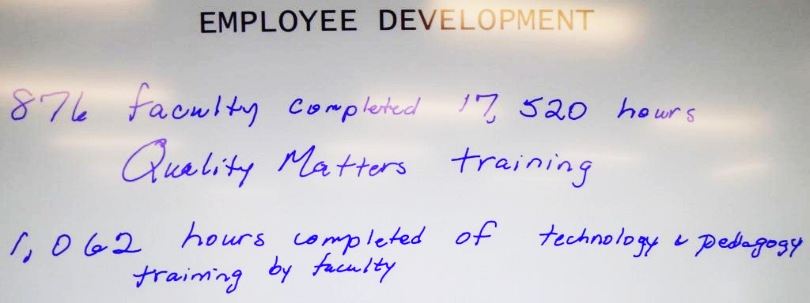 EMPLOYEE DEVELOPMENT
876 faculty completed 17,520 hours
Quality Matters training
1,062 hours completed of technology & pedagogy
training by faculty